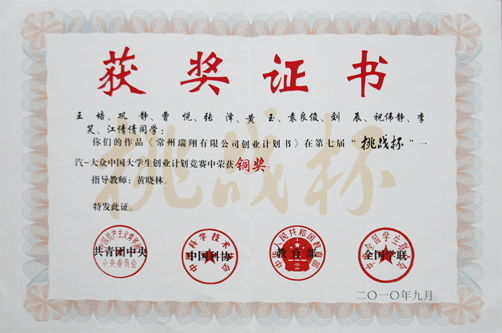 获奖证书
王 培、巩 静、曹 悦、张 泽、黄 玉、袁良俊、刘 晨、祝伟静、李
笑、江倩倩同学：
你们的作品《常州瑞翔有限公司创业计划书》在第七届“挑战杯”一
汽-大众中国大学生创业计划竞赛中荣获铜奖
指导教师：黄晓林。
特发此证。
挑战杯
共青团中央
中国科协
教育部
全国学联
二〇一〇年九月